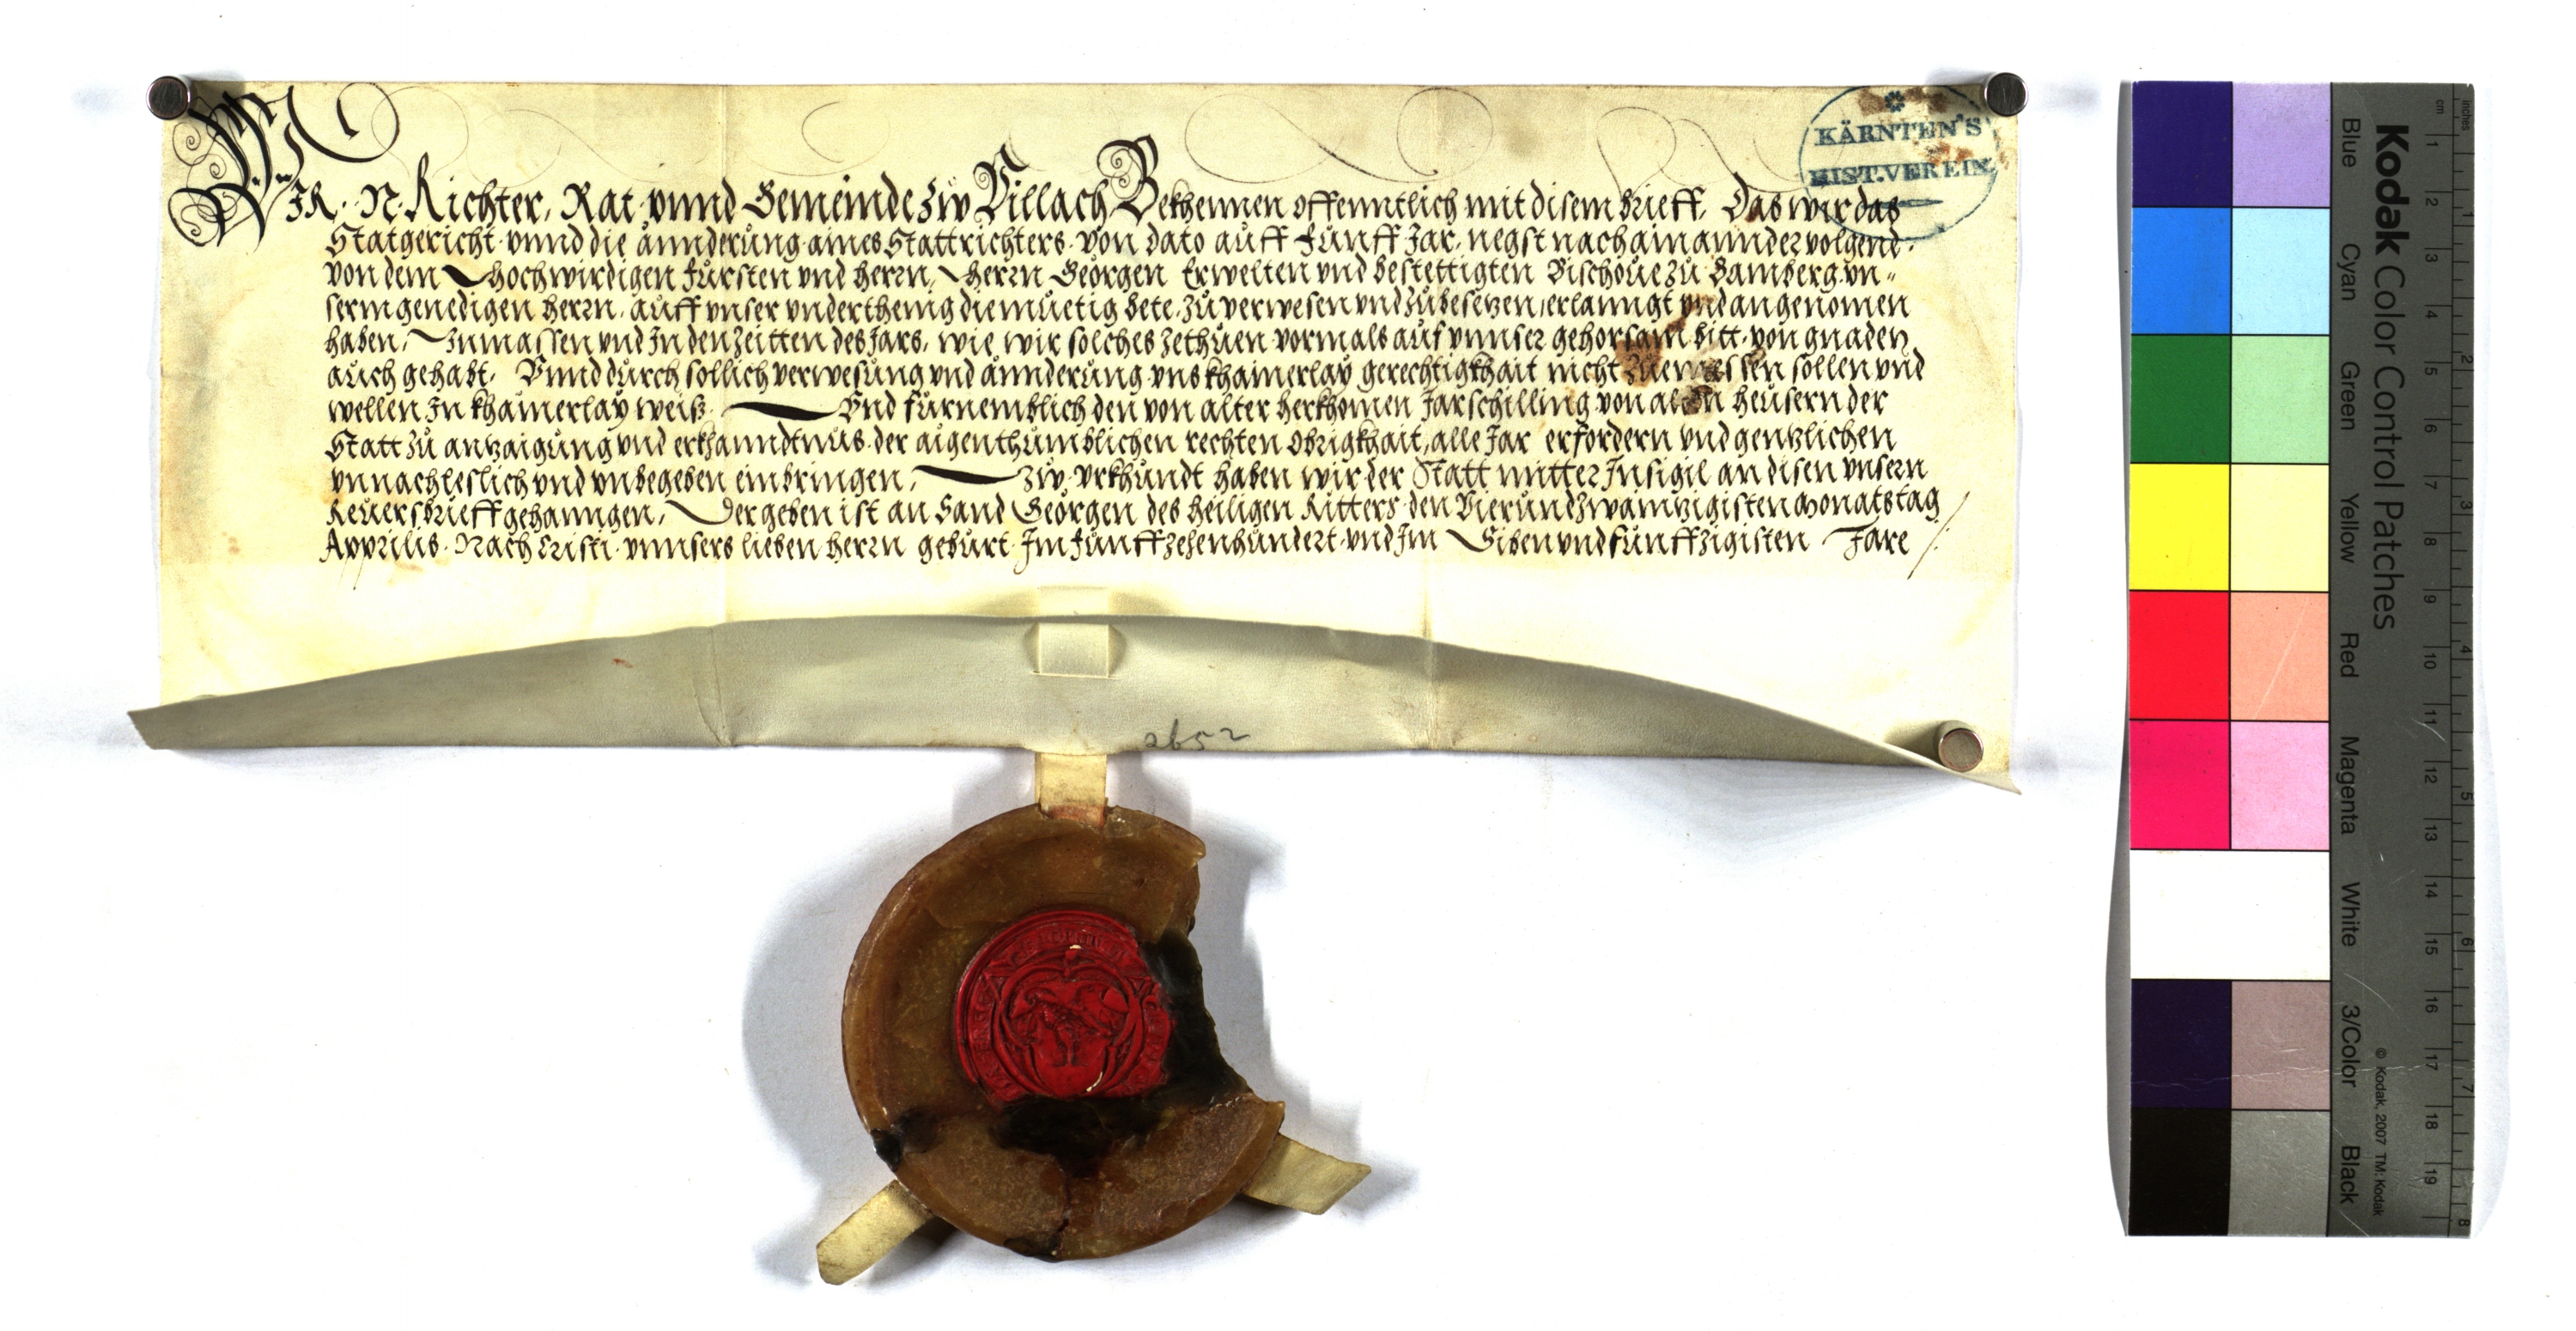 WIR. N. Richter, Rat vnnd Gemeinde Zw Villach Bekhennen offenntlich mit disem brieff. Das wir das
Statgericht vnnd die ännderüng aines Stattrichters von dato aüff fünff Jar, negst nach ainannder volgend.
von dem Hochwirdigen fürsten vnd herrn, Herrn Georgen Erwelten vnd bestettigten Bischoue zü Bamberg, vn-
serm genedigen herrn, aüff vnser vnderthenig diemüetig bete, zü verwesen vnd zübesetzen, erlanngt vnd angenomen
haben, Inmassen vnd In den zeitten des Jars, wie wir solches zethüen vormals aüf vnnser gehorsam bitt, von gnaden
aüch gehabt, Vnnd dürch sollich verwesüng vnd ännderüng vns khainerlay gerechtigkhait nicht sollen vnd
wellen In khainerlay weiß. Vnd fürnemblich den von alter herkhomen Jarschilling von allen heüsern der
Statt zü anzaigüng vnd erkhanndtnüs der aigenthümblichen rechten Obrigkhait, alle Jar erfordern vnd gentzlichen
vnnachleslich vnd vnbegeben einbringen, Zw vrkhündt haben wir der Statt mitter Insigil an disen vnsern
Reüersbrieff gehanngen, Der geben ist an Sand Georgen des heiligen Ritters den Vierundzwaintzigisten Monatstag
Apprilis. Nach Cristi vnnsers lieben herrn gebürt Im fünffzehenhündert vnd Im Siben vnd fünffzigisten Jare
KÄRNTEN'S
HIST. VEREIN
2652
Kodak Color Control Patches
Blue Cyan Green Yellow Red Magenta White 3/Color Black
© Kodak, 2007 TM: Kodak
inches 1 2 3 4 5 6 7 8
cm 1 2 3 4 5 6 7 8 9 10 11 12 13 14 15 16 17 18 19